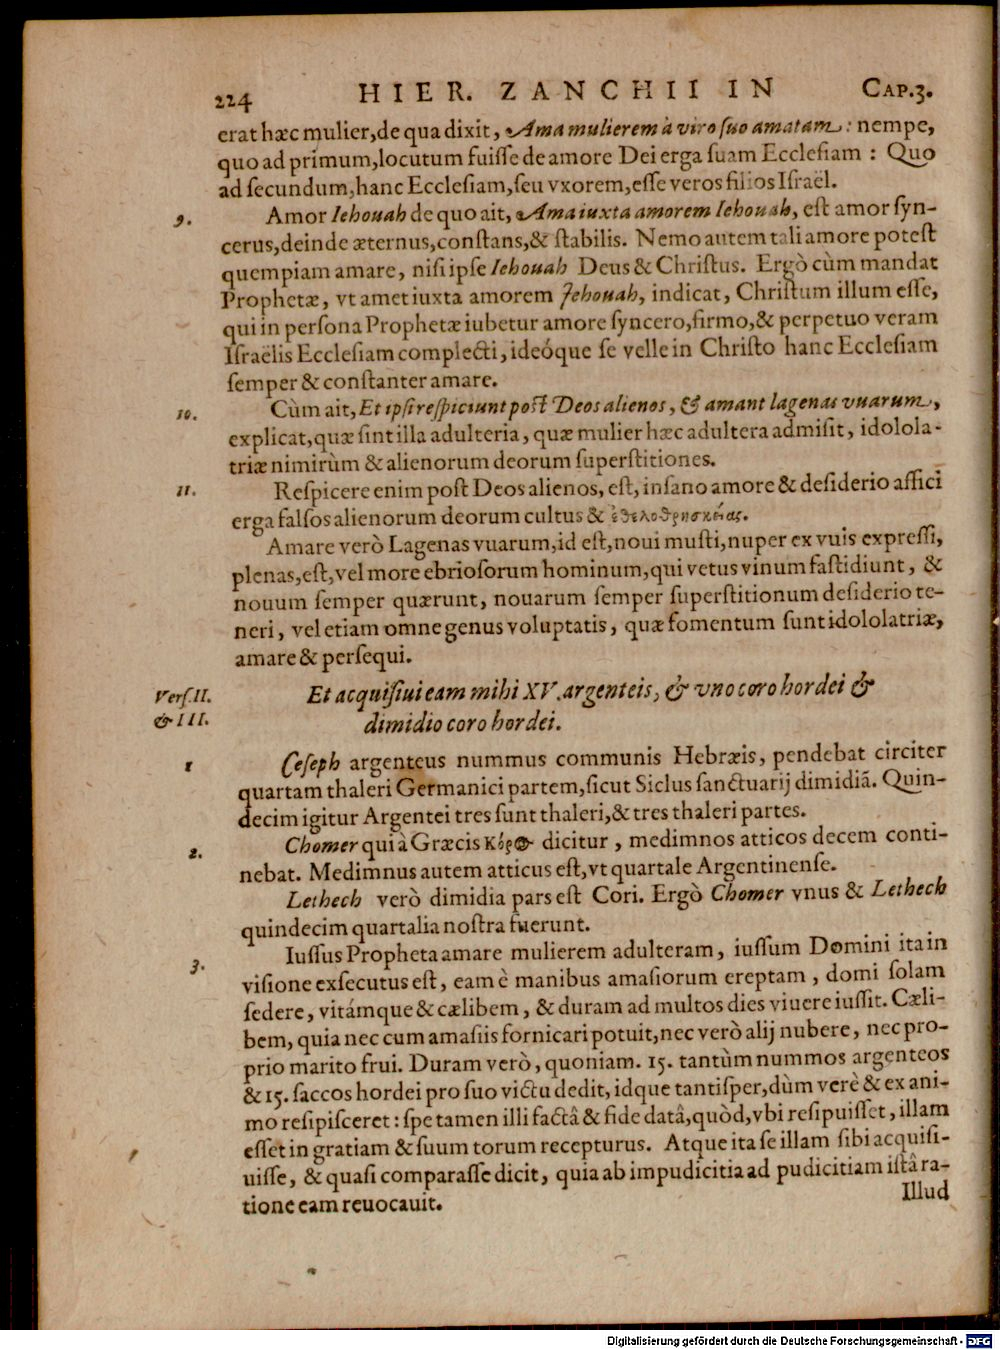 224 HIER. ZANCHII IN CAP.3.
erat hæc mulier, de qua dixit, Ama mulierem à viro ſuo amatam: nempe,
quo ad primum, locutum fuiſſe de amore Dei erga ſuam Eccleſiam : Quo
ad ſecundum, hanc Eccleſiam, ſeu vxorem, eſſe veros filios Iſraël.
9. Amor Iehouah de quo ait, Ama iuxta amorem Iehouah, eſt amor ſyn-
cerus, deinde æternus, conſtans, & ſtabilis. Nemo autem tali amore poteſt
quempiam amare, niſi ipſe Iehouah Deus & Chriſtus. Ergò cùm mandat
Prophetæ, vt amet iuxta amorem Jehouah, indicat, Chriſtum illum eſſe,
qui in perſona Prophetæ iubetur amore ſyncero, firmo, & perpetuo veram
Iſraëlis Eccleſiam complecti, ideóque ſe velle in Chriſto hanc Eccleſiam
ſemper & conſtanter amare.
10. Cùm ait, Et ipſi reſpiciunt poſt Deos alienos, & amant lagenas vuarum,
explicat, quæ ſint illa adulteria, quæ mulier hæc adultera admiſit, idolola-
triæ nimirùm & alienorum deorum ſuperſtitiones.
11. Reſpicere enim poſt Deos alienos, eſt, inſano amore & deſiderio affici
erga falſos alienorum deorum cultus & ἐθελοθρησκείας.
Amare verò Lagenas vuarum, id eſt, noui muſti, nuper ex vuis expreſſi,
plenas, eſt, vel more ebrioſorum hominum, qui vetus vinum faſtidiunt, &
nouum ſemper quærunt, nouarum ſemper ſuperſtitionum deſiderio te-
neri, vel etiam omne genus voluptatis, quæ fomentum ſunt idololatriæ,
amare & perſequi.
Verſ. II. Et acquiſiui eam mihi XV. argenteis, & vno coro hordei &
& III. dimidio coro hordei.
1 Ceſeph argenteus nummus communis Hebræis, pendebat circiter
quartam thaleri Germanici partem, ſicut Siclus ſanctuarij dimidiã. Quin-
decim igitur Argentei tres ſunt thaleri, & tres thaleri partes.
2. Chomer qui à Græcis κόρος dicitur, medimnos atticos decem conti-
nebat. Medimnus autem atticus eſt, vt quartale Argentinenſe.
Lethech verò dimidia pars eſt Cori. Ergò Chomer vnus & Lethech
quindecim quartalia noſtra fuerunt.
3. Iuſſus Propheta amare mulierem adulteram, iuſſum Domini ita in
viſione exſecutus eſt, eam è manibus amaſiorum ereptam, domi ſolam
ſedere, vitámque & cælibem, & duram ad multos dies viuere iuſſit. Cæli-
bem, quia nec cum amaſiis fornicari potuit, nec verò alij nubere, nec pro-
prio marito frui. Duram verò, quoniam. 15. tantùm nummos argenteos
& 15. ſaccos hordei pro ſuo victu dedit, idque tantiſper, dùm verè & ex ani-
mo reſipiſceret: ſpe tamen illi factâ & fide datâ, quòd, vbi reſipuiſſet, illam
eſſet in gratiam & ſuum torum recepturus. Atque ita ſe illam ſibi acquiſi-
uiſſe, & quaſi comparaſſe dicit, quia ab impudicitia ad pudicitiam iſtâ ra-
tione eam reuocauit.
Illud
Digitalisierung gefördert durch die Deutsche Forschungsgemeinschaft - DFG